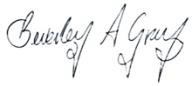 Beverley A Gray